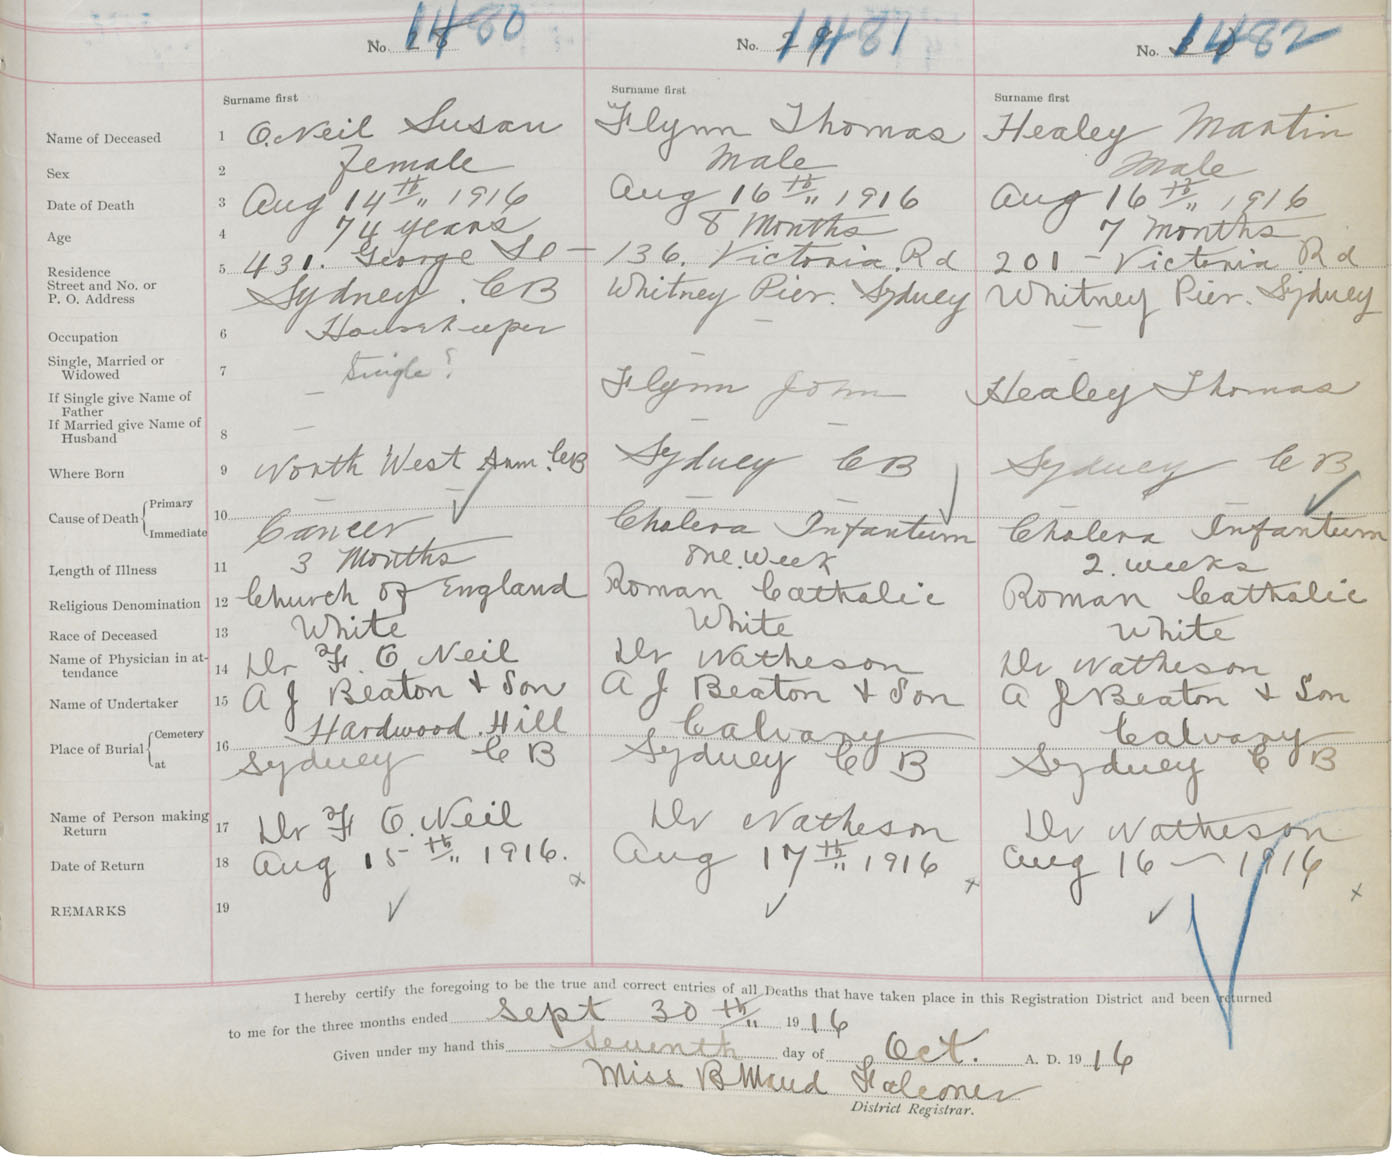 No. 28 1480 No. 29 1481 No. 30 1482
Surname first Surname first Surname first
Name of Deceased 1 O.Neil Susan Flynn Thomas Healey Martin
Sex 2 Female Male Male
Date of Death 3 Aug 14th, 1916 Aug 16th, 1916 Aug 16th, 1916
Age 4 74 years 8 Months 7 Months
Residence 5 431. George St - 136. Victoria. Rd 201 - Victoria Rd
Street and No. or
P. O. Address Sydney. CB Whitney Pier. Sydney Whitney Pier. Sydney
Occupation 6 Housekeeper – –
Single, Married or
Widowed 7 Single? – –
If Single give Name of
Father – Flynn John Healey Thomas
If Married give Name of
Husband 8 – – –
Where Born 9 North West Arm. CB Sydney CB Sydney CB
Cause of Death Primary 10 – – – – –
Immediate Cancer Cholera Infantum Cholera Infantum
Length of Illness 11 3 Months one. week 2. weeks
Religious Denomination 12 Church of England Roman Catholic Roman Catholic
Race of Deceased 13 White White White
Name of Physician in at-
tendance 14 Dr F. O Neil Dr Natheson Dr Natheson
Name of Undertaker 15 A J Beaton & Son A J Beaton & Son A J Beaton & Son
Place of Burial Cemetery 16 Hardwood. Hill Calvary Calvary
at Sydney CB Sydney CB Sydney CB
Name of Person making
Return 17 Dr F O. Neil Dr Natheson Dr Natheson
Date of Return 18 Aug 15th, 1916. Aug 17th, 1916 Aug 16 – 1916
x x x
REMARKS 19
I hereby certify the foregoing to be the true and correct entries of all Deaths that have taken place in this Registration District and been returned
to me for the three months ended Sept 30th 1916
Given under my hand this Seventh day of Oct. A. D. 1916
Miss B Maud Falconer
District Registrar.